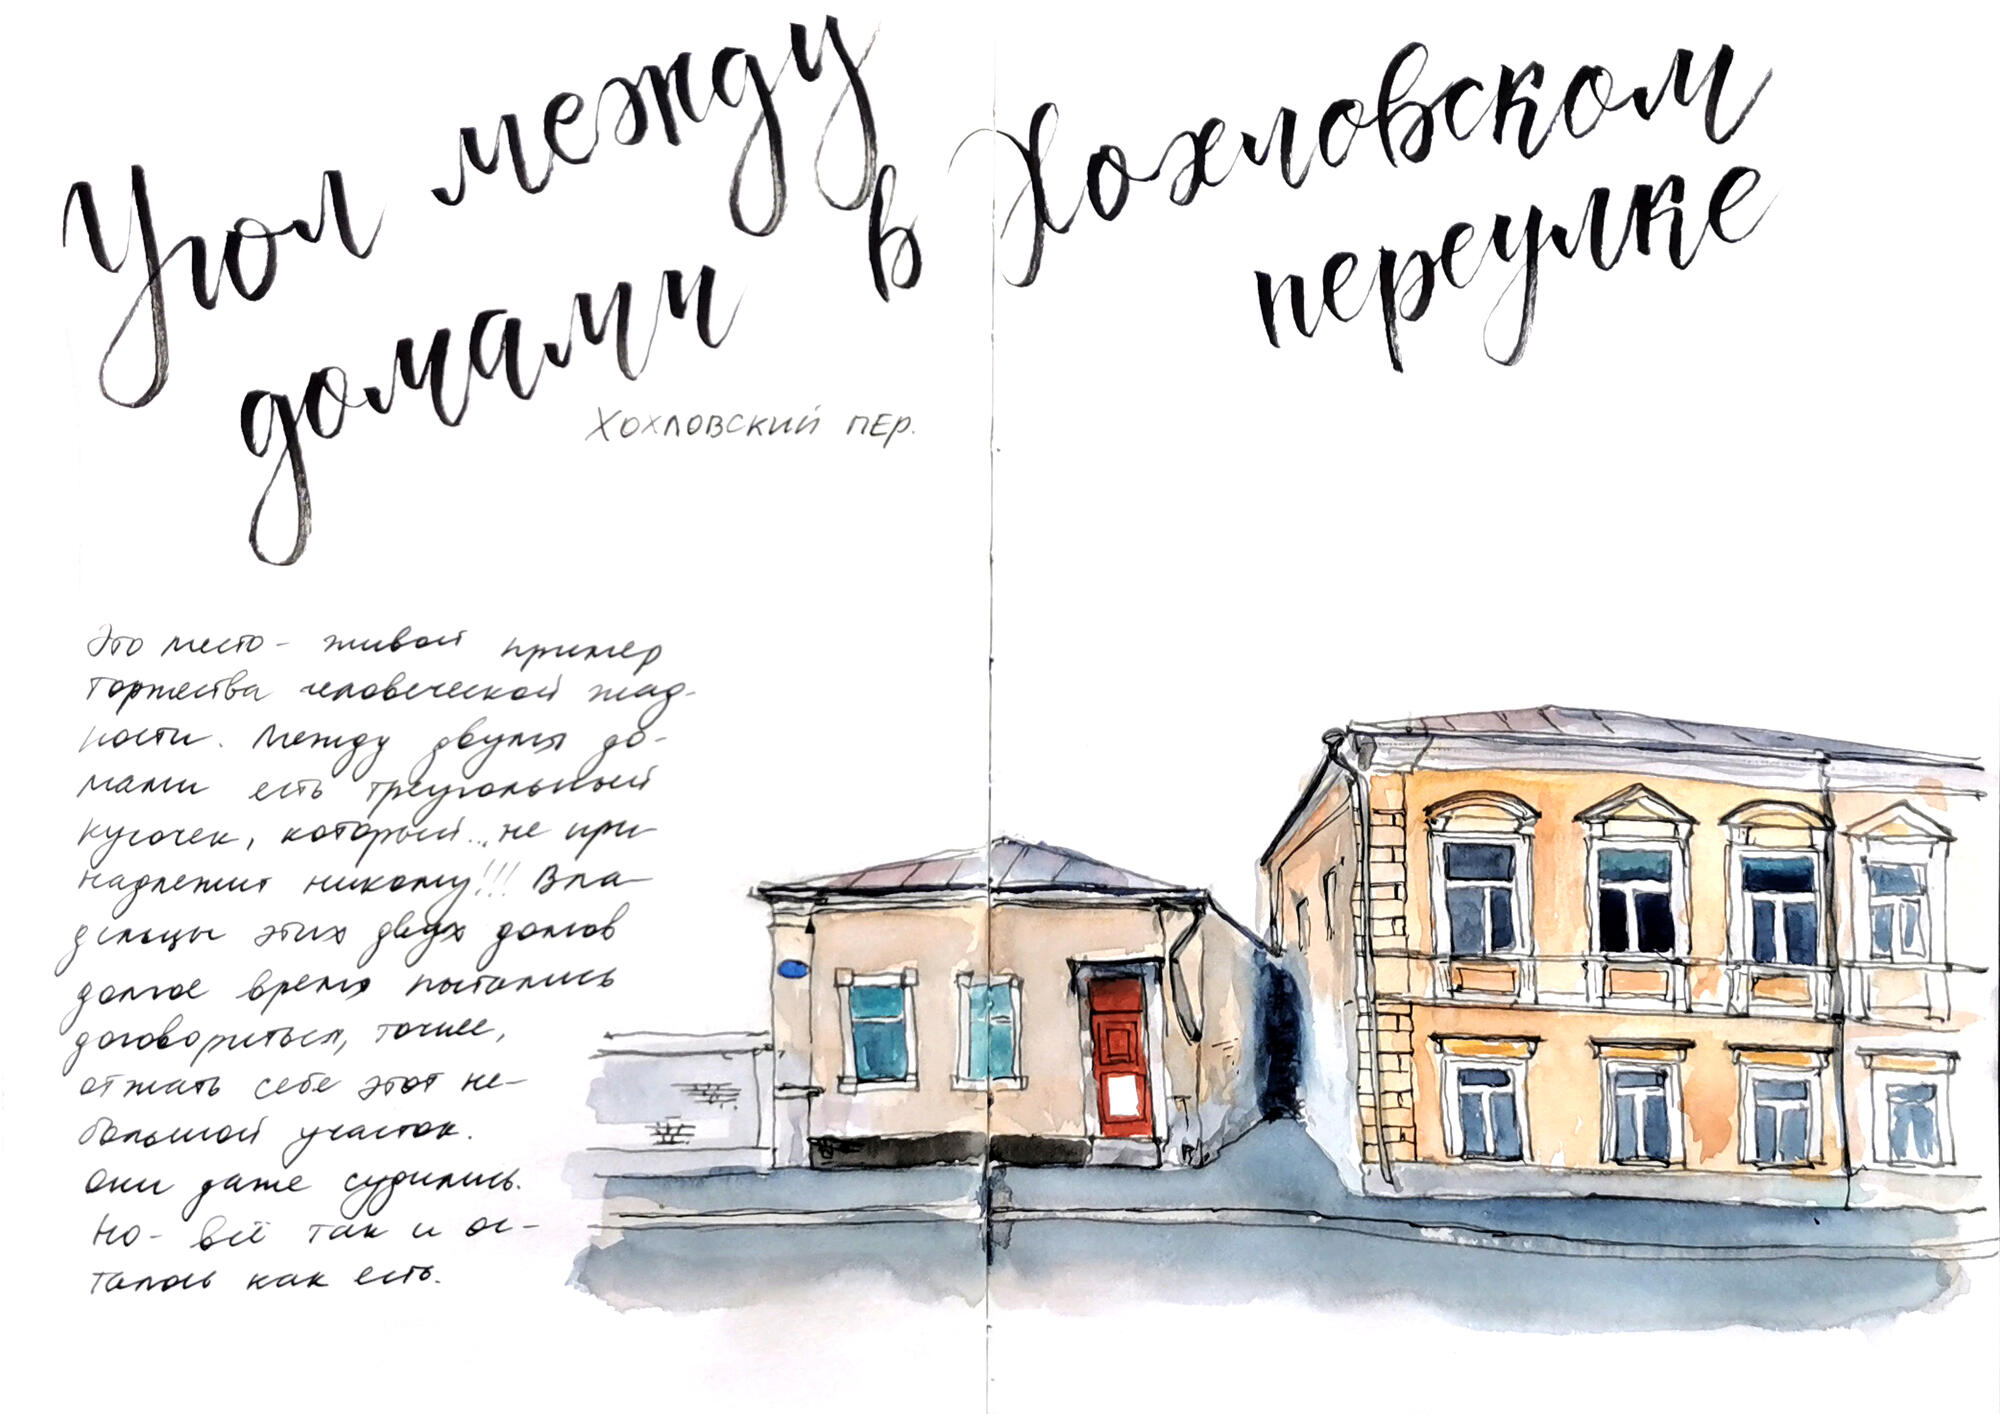 Угол между
домами
в Хохловском
переулке
Хохловский пер.
Это место - живой пример
торжества человеческой жад-
ности. Между двумя до-
мами есть треугольный
кусочек, который... не при
надлежит никому!!! Вла-
дельцы этих двух домов
долгое время пытались
договориться, точнее,
отжать себе этот не-
большой участок.
Они даже судились.
Но - всё так и ос-
талось как есть.